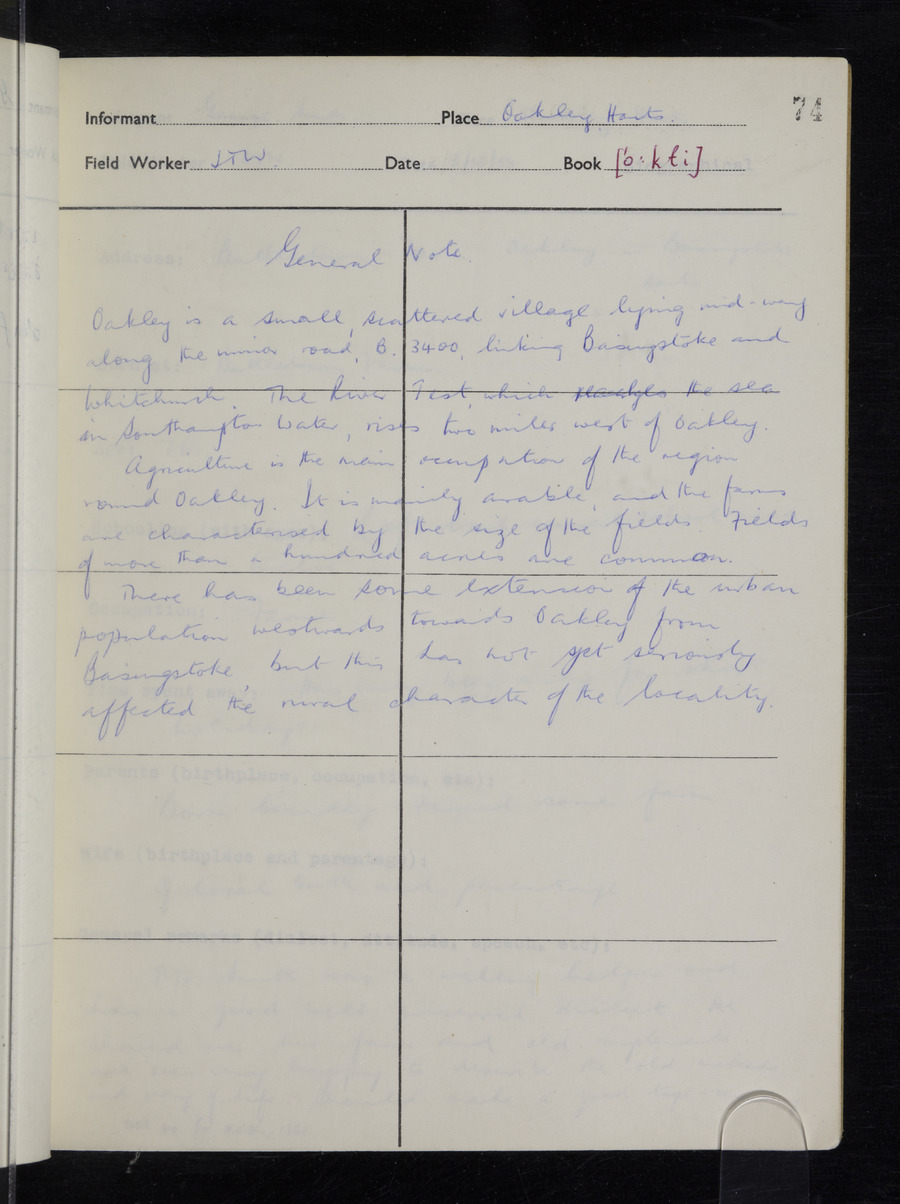 Informant Place Oakley, Hants. 74
Field Worker JTW Date Book [ó:kli]
General Note.
Oakley is a small, scattered village lying mid-way
along the minor road, B. 3400, linking Basingstoke and
Whitchurch. The River Test, which reaches the sea
in Southampton Water, rises two miles west of Oakley.
Agriculture is the main occupation of the region
round Oakley. It is mainly arable, and the farms
are characterised by the size of the fields. Fields
of more than a hundred acres are common.
There has been some extension of the urban
population westwards towards Oakley from
Basingstoke but this has not yet seriously
affected the rural character of the locality.
Address:
Parents (birthplace, occupation, etc):
Wife (birthplace and parentage):